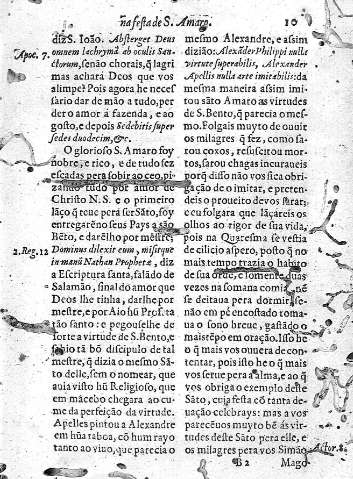 na festa de S. Amaro.
10
diz S. Ioão. Absterget Deus
omnem lachrymã ab oculis San-
ctorum, senão chorais, q̃ lagri
mas achará Deos que vos
alimpe? Pois agora he neces
sario dar de mão a tudo, per
der o amor á fazenda, e ao
gosto, e depois sedebitis super
sedes duodecim, &c.
O glorioso S. Amaro foy
nobre, e rico, e de tudo fez
escadas pera sobir ao ceo, pi
zando tudo por amor de
Christo N. S. e o primeiro
laço q̃ teue pera ser Sãto, foy
entregarẽno seus Pays a são
Bẽto, e darẽlho por mestre;
Dominus dilexit eum, misitque
in manu Nathan Prophetæ, diz
a Escriptura santa, falãdo de
Salamão, sinal do amor que
Deos lhe tinha, darlhe por
mestre, e por Aio hũ Profeta
tão santo: e pegouselhe de
sorte a virtude de S. Bento, e
sahio tã bõ discipulo de tal
mestre, q̃ dizia o mesmo Sã
to delle, sem o nomear, que
auia visto hũ Religioso, que
em mãcebo chegara ao cu-
me da perfeição da virtude.
Apelles pintou a Alexandre
em hũa taboa, cõ hum rayo
tanto ao viuo, que parecia o
Apoc. 7.
2. Reg. 12
mesmo Alexandre, e assim
dizião: Alexãder Philippi nulla
virtute superabilis, Alexander
Apellis nulla arte imitabilis: da
mesma maneira assim imi
tou sãto Amaro as virtudes
de S. Bento, q̃ parecia o mes
mo. Folgais muyto de ouuir
os milagres q̃ fez, como sa
rou coxos, resuscitou mor-
tos, sarou chagas incuraueis
porq̃ disso não vos fica obri
gação de o imitar, e preten-
deis o proueito deuos sarar;
e eu folgara que lãçareis os
olhos ao rigor de sua vida,
pois na Quaresma se vestia
de cilicio aspero, posto q̃ no
mais tempo trazia o habito
de sua ordẽ, e somente duas
vezes na somana comia, nẽ
se deitaua pera dormir, se-
não em pé encostado toma-
ua o sono breue, gastãdo o
mais tẽpo em oração. Isso he
o q̃ mais vos ouuera de con-
tentar, pois isto he o q̃ mais
vos serue pera a alma, e ao q̃
vos obriga o exemplo deste
Sãto, cuja festa cõ tanta de
uação celebrays: mas a vos
pareceuos muyto bẽ ás vir-
tudes deste Sãto pera elle, e
os milagres pera vos. Simão
Actor. 8.
B 2
Mago